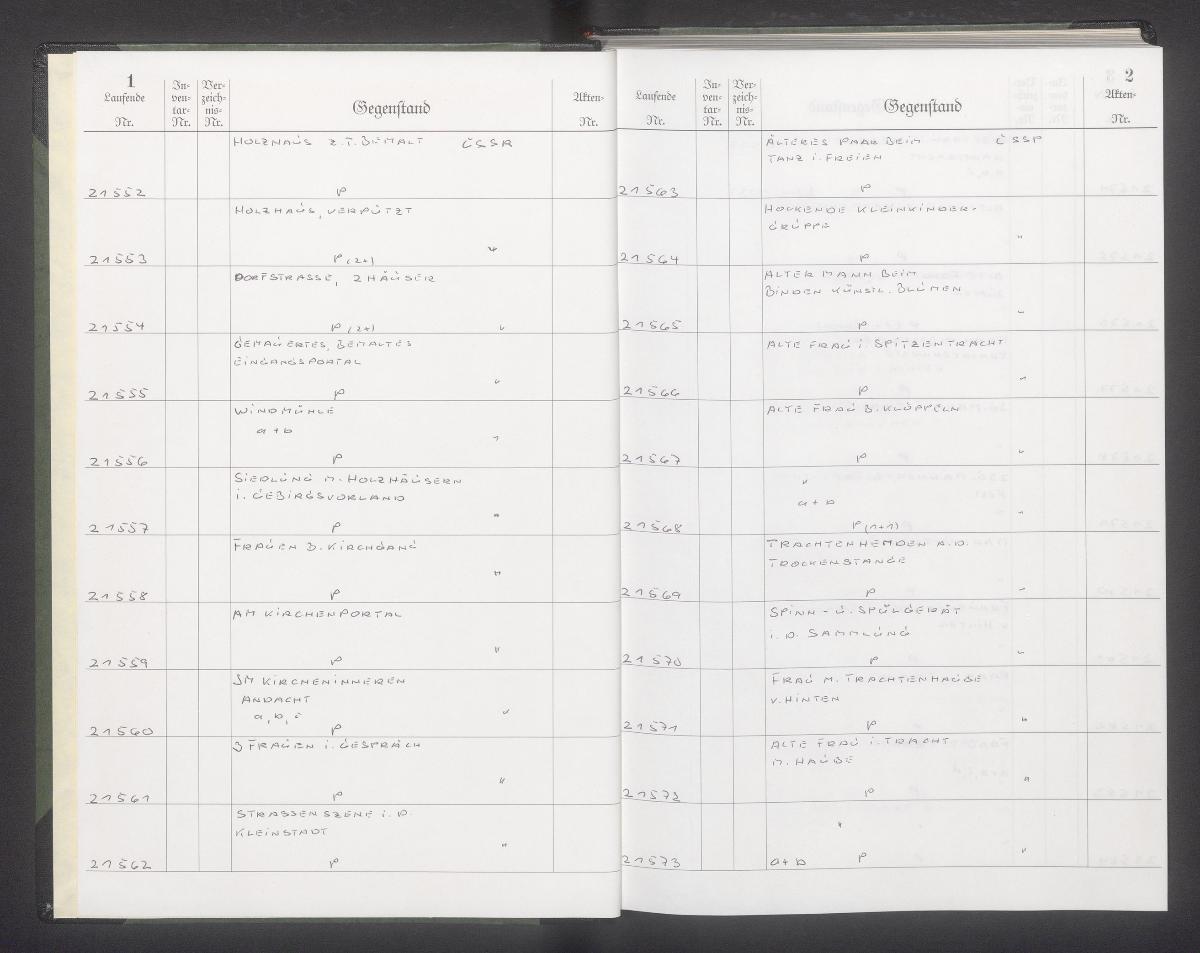 1
Laufende
Nr.
In-
ven-
tar-
Nr.
Ver-
zeich-
nis-
Nr.
Gegenstand
Akten-
Nr.
HOLZHAUS Z.T. BEMALT ČSSR
21552 P
HOLZHAUS, VERPUTZT
"
21553 P (2+)
DORFSTRASSE, 2 HÄUSER
21554 P (2+) "
GEMAUERTES, BEMALTES
EINGANGSPORTAL
"
21555 P
WINDMÜHLE
a + b
"
21556 P
SIEDLUNG M. HOLZHÄUSERN
i. GEBIRGSVORLAND
"
21557 P
FRAUEN B. KIRCHGANG
"
21558 P
AM KIRCHENPORTAL
"
21559 P
IM KIRCHENINNEREN
ANDACHT
a, b, c "
21560 P
3 FRAUEN i. GESPRÄCH
"
21561 P
STRASSENSZENE i. D.
KLEINSTADT
"
21562 P
2
Laufende
Nr.
In-
ven-
tar-
Nr.
Ver-
zeich-
nis-
Nr.
Gegenstand
Akten-
Nr.
ÄLTERES PAAR BEIM ČSSR
TANZ i. FREIEN
21563 P
HOCKENDE KLEINKINDER-
GRUPPE
"
21564 P
ALTER MANN BEIM
BINDEN KÜNSTL. BLUMEN
"
21565 P
ALTE FRAU i. SPITZENTRACHT
"
21566 P
ALTE FRAU B. KLÖPPELN
"
21567 P
"
a + b
"
21568 P (1+1)
TRACHTENHEMDEN A. D.
TROCKENSTANGE
"
21569 P
SPINN- U. SPULGERÄT
i. D. SAMMLUNG
"
21570 P
FRAU M. TRACHTENHAUBE
V. HINTEN
"
21571 P
ALTE FRAU i. TRACHT
M. HAUBE
"
21572 P
"
"
21573 a + b P